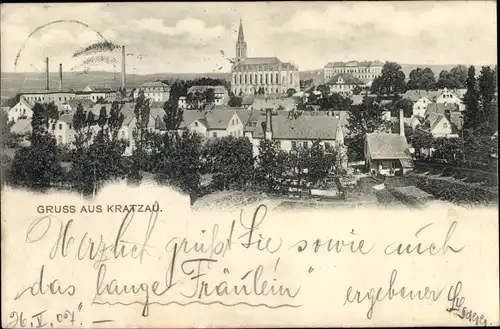 GRUSS AUS KRATZAU.
Herzlich grüßt Sie sowie auch
das "lange Fräulein" ergebener
26. V. 07.